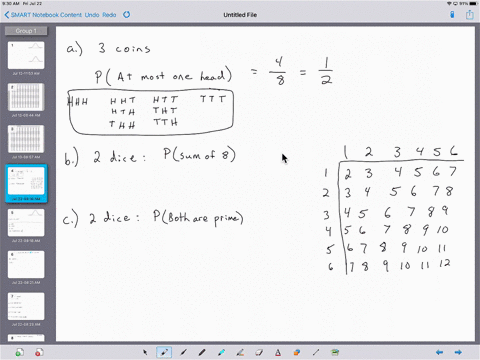 9:30 AM Fri Jul 23
SMART Notebook Content Undo Redo
Untitled File
Group 1
a.) 3 coins
P( At most one head) = 4/8 = 1/2
HHH HHT HTT TTT
HTH THT
THH TTH
b.) 2 dice: P(sum of 8)
c.) 2 dice: P(Both are prime)
1 2 3 4 5 6
1 2 3 4 5 6 7
2 3 4 5 6 7 8
3 4 5 6 7 8 9
4 5 6 7 8 9 10
5 6 7 8 9 10 11
6 7 8 9 10 11 12